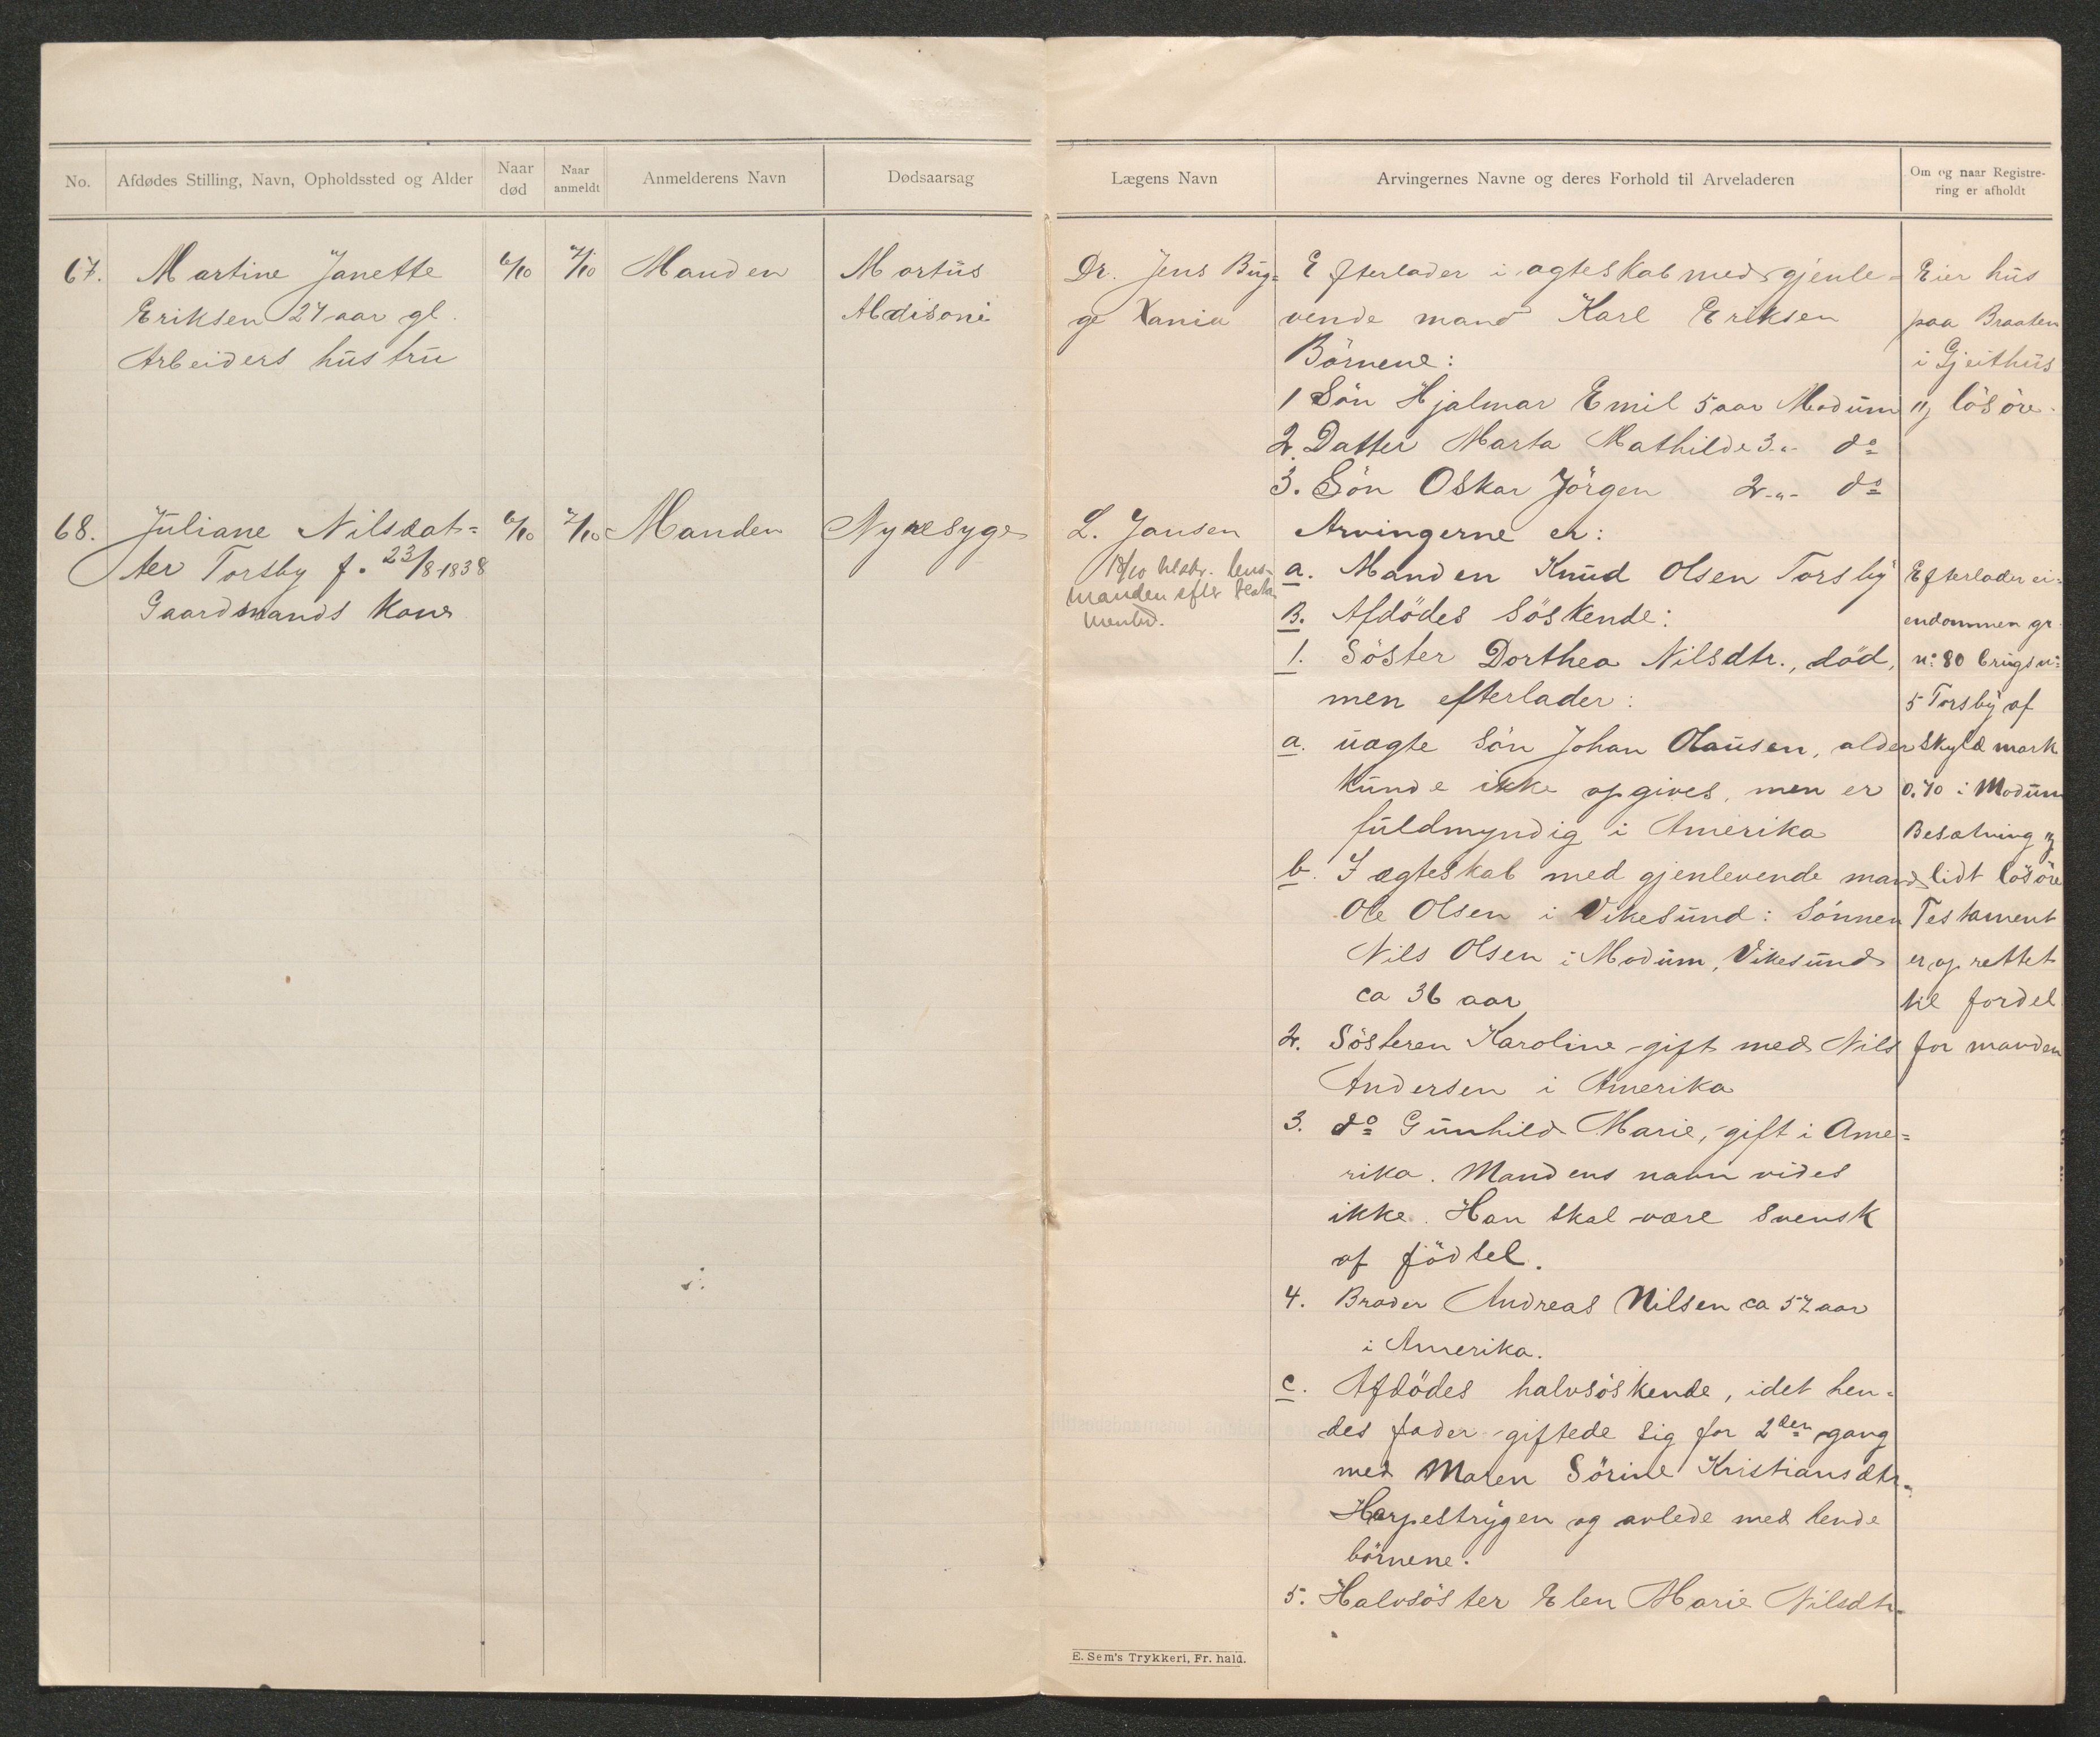 No.
Afdødes Stilling, Navn, Opholdssted og Alder
Naar død
Naar anmeldt
Anmelderens Navn
Dødsaarsag
Lægens Navn
Arvingernes Navne og deres Forhold til Arveladeren
Om og naar Registre-
ring er afholdt
67. Martine Janette 6/10 7/10 Manden Morbus
Eriksen 27 aar gl. Addisoni
Arbeiders hustru
Dr. Jens Bug=
ge Xania
Efterlader i ægteskab med gjenle-
vende mand Karl Eriksen
Börnene:
1 Sön Hjalmar Emil 5 aar Modum
2. Datter Marta Mathilde 3 -"- do
3. Sön Oskar Jörgen 2 -"- do
Eier hus
paa Braaten
i Gjeithus
og lösöre.
68. Juliane Nilsdat= 6/10 7/10 Manden Nyresyge
ter Torsby f. 23/8-1838
Gaardmands kone
L. Jansen
18/10 lens-
manden efter testa
mented.
Arvingerne er:
a. Manden Knud Olsen Torsby
B. Afdödes Söskende:
1. Söster Dorthea Nilsdtr., död,
men efterlader:
a. uægte Sön Johan Olausen, alder
kunde ikke opgives, men er
fuldmyndig i Amerika
b. I ægteskab med gjenlevende mand
Ole Olsen i Vikesund: Sönnen
Nils Olsen i Modum, Vikesund
ca 36 aar
2. Sösteren Karoline gift med Nils
Andersen i Amerika
3. do Gunhild Marie, gift i Ame=
rika. Mandens navn vides
ikke. Han skal være svensk
af födsel.
4. Broder Andreas Nilsen ca 57 aar
i Amerika.
c. Afdödes halvsöskende, idet hen-
des fader giftede sig for 2den gang
med Maren Sörine Kristiansdtr.
Harpestrygen og avlede med hende
börnene:
5. Halvsöster Elen Marie Nilsdtr.
Efterlader ei=
endommen gr.
no 80 brugsno
5 Torsby af
Skyld mark
0.70 i Modum
Besætning og
lidt lösöre
Testament
er oprettet
til fordel
for manden
E. Sem's Trykkeri, Fr. hald.